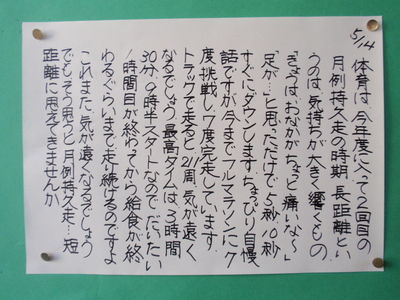 5/14
体育は、今年度に入って2回目の
月例持久走の時期。長距離とい
うのは、気持ちが大きく響くもの
「きょうは、おなかがちょっと痛いな〜」
「足が…」と思っただけで5秒、10秒
すぐにダウンします。ちょっぴり自慢
話ですが、今までフルマラソンに7
度挑戦し、7度完走しています。
トラックで走ると211周、気が遠く
なるでしょう。最高タイムは、3時間
30分、9時半スタートなので、だいたい
1時間目が終わってから給食が終
わるぐらいまで走り続けるのですよ
これまた、気が遠くなるでしょう
でも、そう思うと、月例持久走…短
距離に思えてきませんか